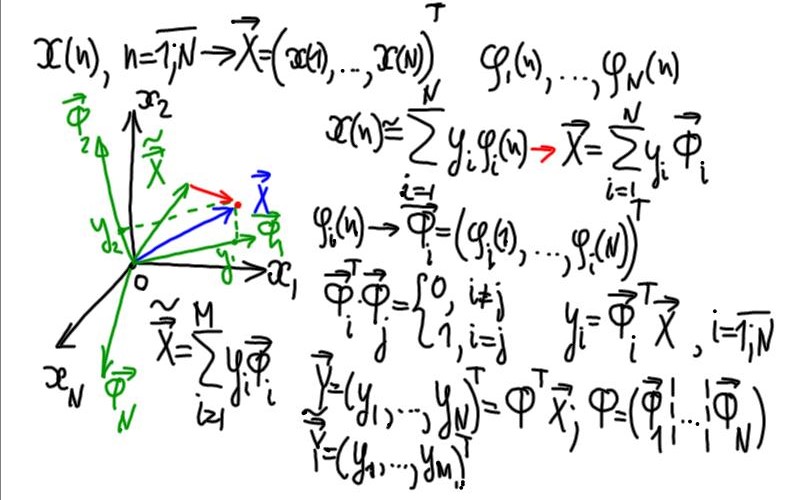 x(n), n=\overline{1;N} → \vec{X}=(x(1),...,x(N))^T φ_1(n),...,φ_N(n)
x(n)≅\sum_{i=1}^{N} y_i φ_i(n) → \vec{X}=\sum_{i=1}^{N} y_i \vec{Φ}_i
φ_i(n) → \vec{Φ}_i=(φ_i(1),...,φ_i(N))^T
\vec{Φ}_i^T·\vec{Φ}_j={0, i≠j
1, i=j
y_i=\vec{Φ}_i^T \vec{X}, i=\overline{1;N}
\vec{Y}=(y_1,...,y_N)^T=Φ^T \vec{X}; Φ=(\vec{Φ}_1¦...¦\vec{Φ}_N)
\tilde{\vec{Y}}=(y_1,...,y_M)^T
\vec{Φ}_2
x_2
\tilde{\vec{X}}
\vec{X}
y_2
\vec{Φ}_1
y_1
0
x_1
x_N
\vec{Φ}_N
\tilde{\vec{X}}=\sum_{i=1}^{M} y_i \vec{Φ}_i